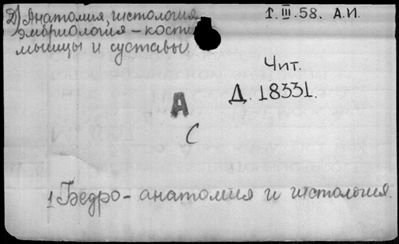 2) Анатомия, гистология,
эмбриология – кости
мышцы и суставы
1.III.58. А.И.
Чит.
Д. 18331.
А
С
1 Бедро – анатомия и гистология.